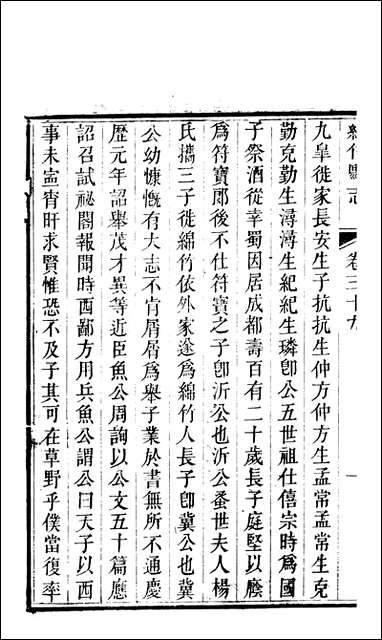 綿竹縣志
卷三十九
九臯徙家長安生子抗抗生仲方仲方生孟常孟常生克
勤克勤生潯潯生紀紀生璘卽公五世祖仕僖宗時爲國
子祭酒從幸蜀因居成都壽百有二十歲長子庭堅以廕
爲符寶郎後不仕符寶之子卽沂公也沂公蚤世夫人楊
氏攜三子徙綿竹依外家遂爲綿竹人長子卽冀公也冀
公幼慷慨有大志不肯屑屑爲舉子業於書無所不通慶
歷元年詔舉茂才異等近臣魚公周詢以公文五十篇應
詔召試祕閣報聞時西鄙方用兵魚公謂公曰天子以西
事未寍宵旰求賢惟恐不及子其可在草野乎僕當復率